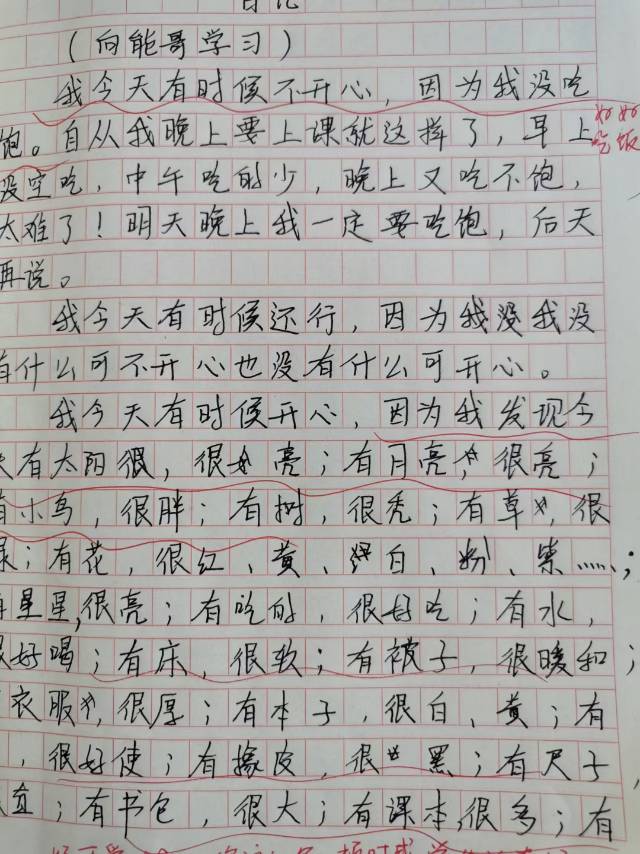 日记
（向能哥学习）
我今天有时候不开心，因为我没吃
饱。自从我晚上要上课就这样了，早上
好好吃饭
没空吃，中午吃的少，晚上又吃不饱，
太难了！明天晚上我一定要吃饱，后天
再说。
我今天有时候还行，因为我没我没
有什么可不开心也没有什么可开心。
我今天有时候开心，因为我发现今
天有太阳，很亮；有月亮，很亮；
有小鸟，很胖；有树，很秃；有草，很
绿；有花，很红、黄、白、粉、紫……；
有星星，很亮；有吃的，很好吃；有水，
很好喝；有床，很软；有被子，很暖和；
衣服，很厚；有本子，很白、黄；有
，很好使；有橡皮，很黑；有尺子，
直；有书包，很大；有课本，很多；有